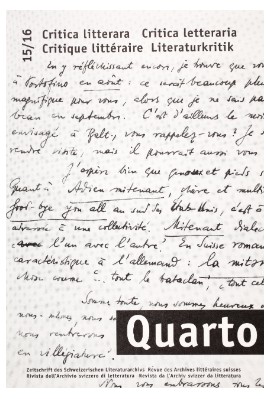 15/16
Critica litterara Critica letteraria
Critique littéraire Literaturkritik
En y réfléchissant encore, je trouve que vo
à Portofino en août : ce serait beaucoup plus
magnifique pour vous, alors que je ne sais pa
beau en septembre. C'est d'ailleurs le
envisagé à vous rappelez-vous ? Je
rendre visite, mais il pourrait aussi vous
J'espère bien que et pieds
Quant à mitenant, et
Good-bye you all au sud des Etats-Unis, c'est à
à une collectivité. Mitenant
l'un avec l'autre ? En Suisse roman
caractéristique à l'allemand : la
Mon comme tout le bataclan, tout
Somme toute nous sommes heureux
nous-mêmes nous
nous rentrerons
en villégiature.
Quarto
Zeitschrift des Schweizerischen Literaturarchivs Revue des Archives littéraires suisses
Rivista dell'Archivio svizzero di letteratura Revista da l'Archiv svizzer da litteratura
Nous vous embrassons